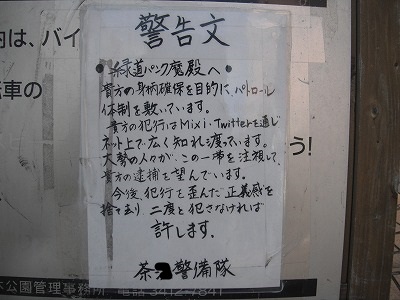 内は、バイ
警告文
緑道パンク魔殿へ
貴方の身柄確保を目的に、パトロール
体制を敷いています。
貴方の犯行はMixi・Twitterを通じ
ネット上で広く知れ渡っています。
大勢の人々が、この一帯を注視して、
貴方の逮捕を望んでいます。
今後、犯行を歪んだ正義感を
捨て去り、二度と犯さなければ
許します。
茶 警備隊
転車の
う!
公園管理事務所 電話 3412-7841